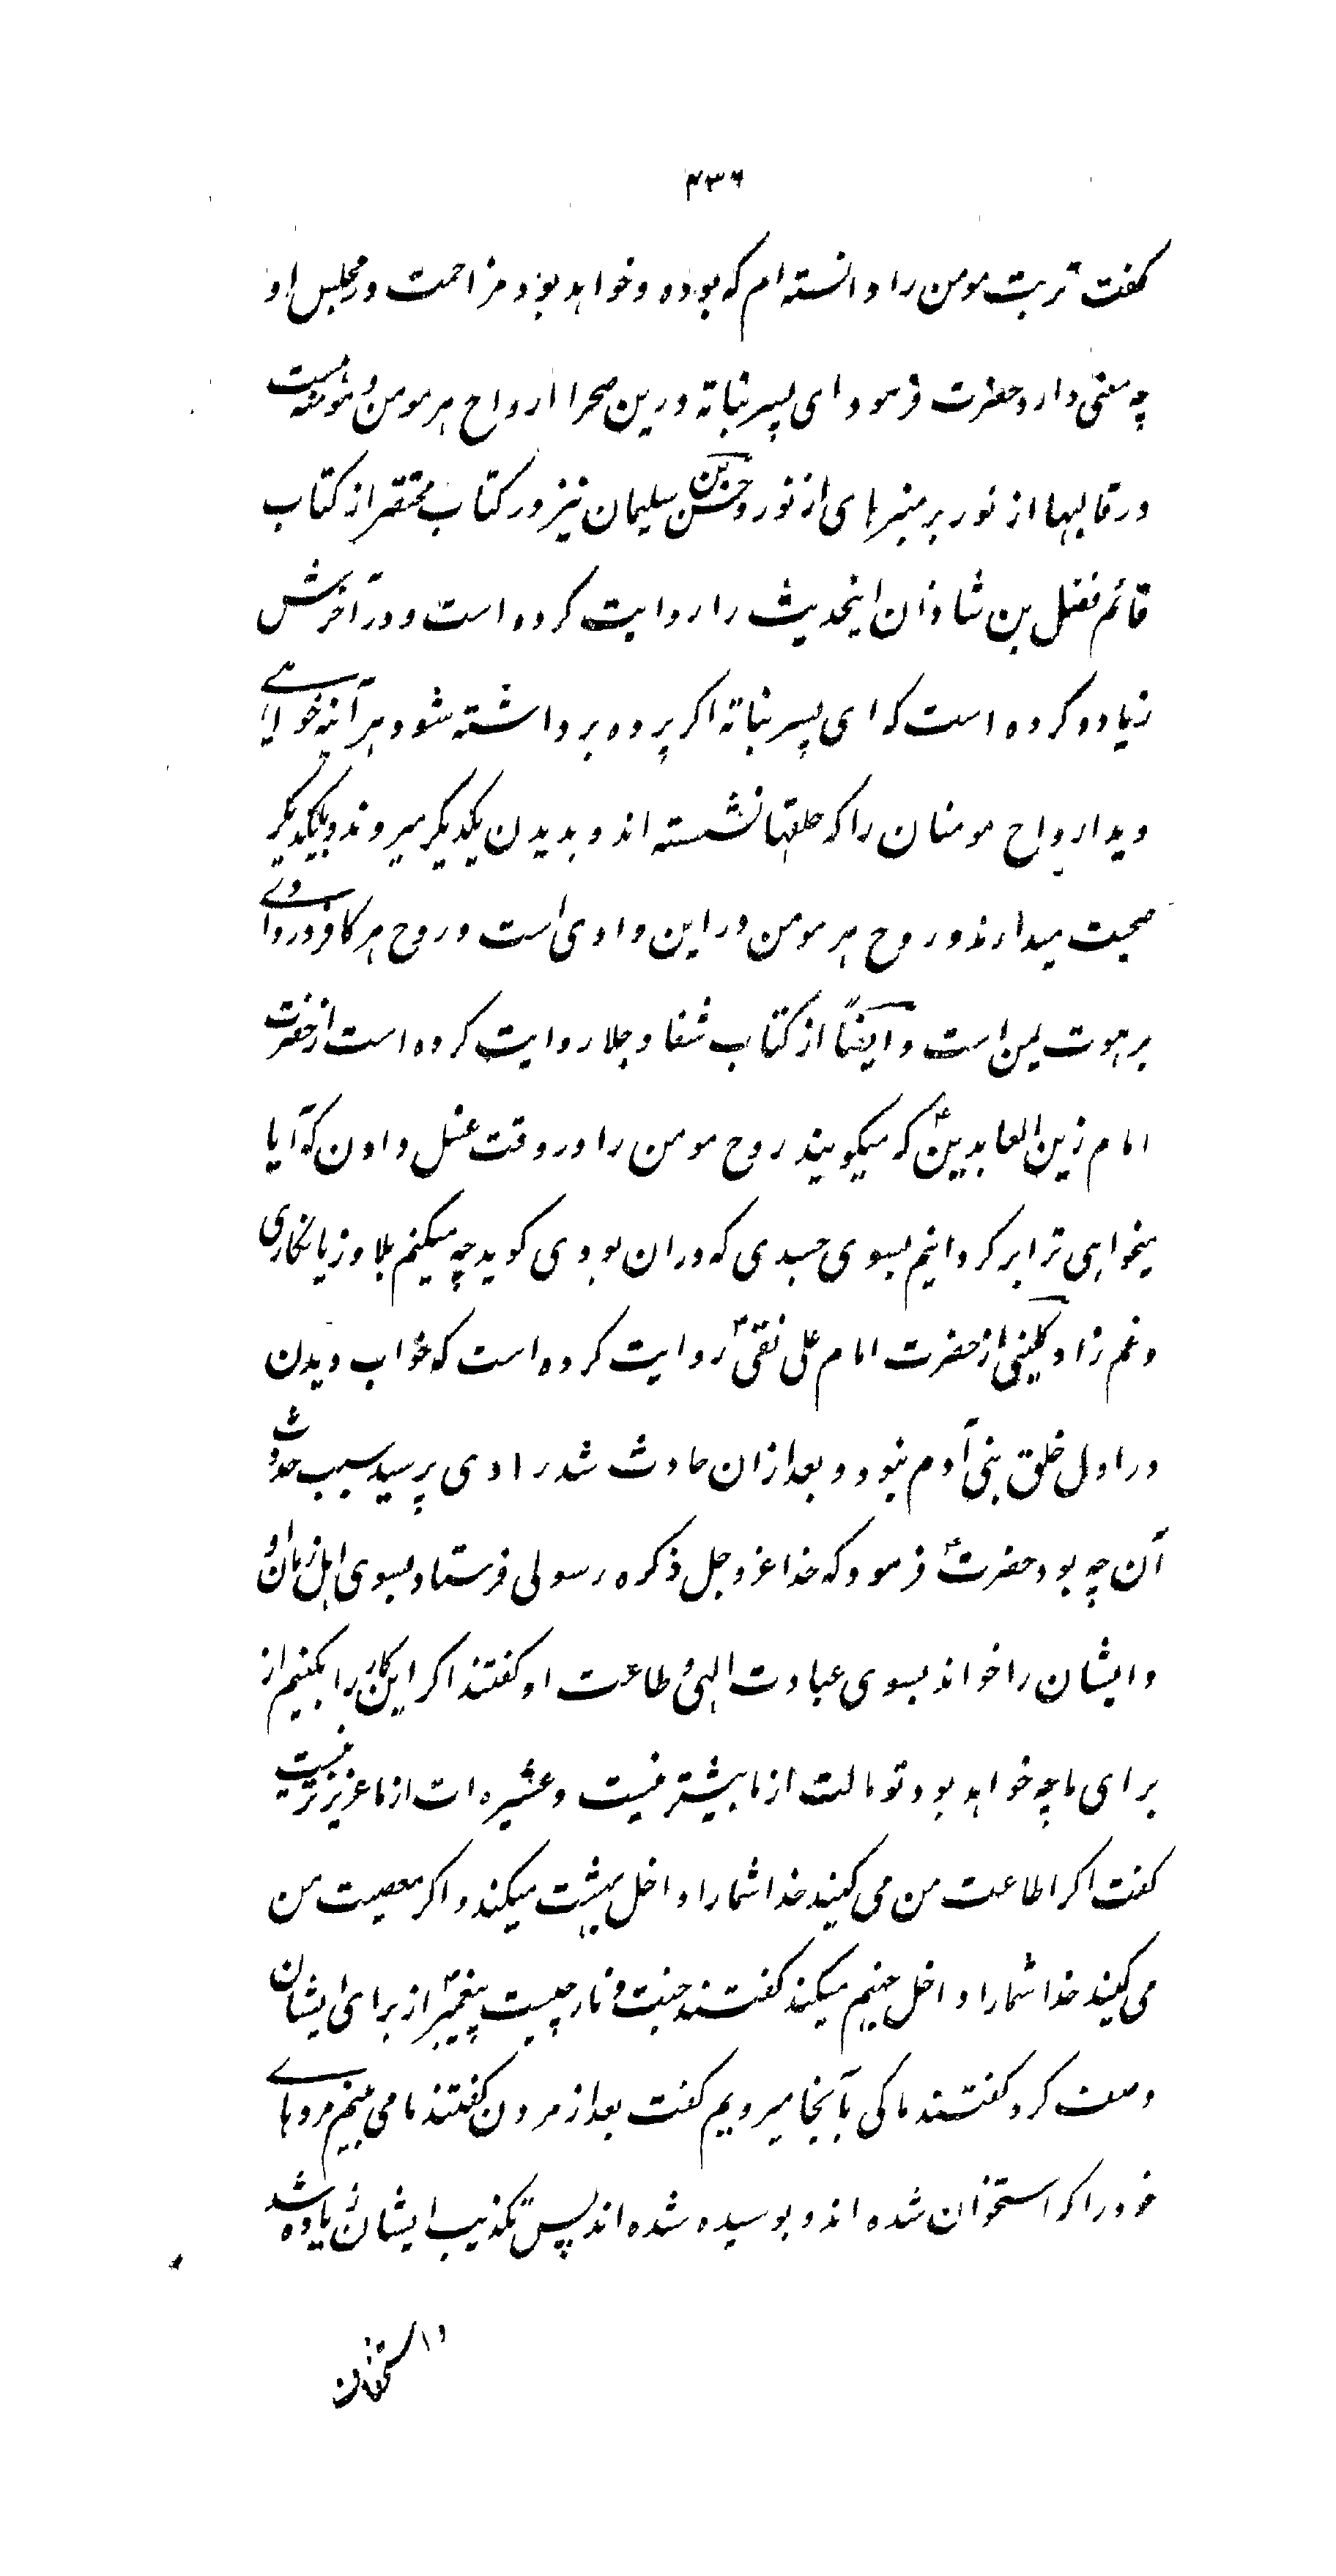 ۴۳۶
کفت تربت مومن را دانسته ام که بوده و خواهد بود مزاحمت در مجلس او
چه معنی دارد حضرت فرمود ای پسر نباته درین صحرا ارواح هر مومن و مومنه هست
در قالبها از نور بر منبرهای از نور و حسن بن سلیمان نیز در کتاب مختصر از کتاب
قائم فضل بن شاذان اینحدیث را روایت کرده است و در آخرش
زیاده کرده است که ای پسر نباته اکر پرده برداشته شود هر آینه خواهی
دید ارواح مومنان را که حلقها نشسته اند و بدیدن یکدیکر میروند و بیکدیکر
صحبت میدارند و روح هر مومن در این وادی است و روح هر کافر در وادی
برهوت یمن است و ایضاً از کتاب شفا و جلا روایت کرده است از حضرت
امام زین العابدینؑ که میکویند روح مومن را در وقت غسل دادن که آیا
میخواهی ترا بر کردانیم بسوی جسدی که در ان بودی کوید چه میکنم بلا و زیانکاری
و غم را و کلینی از حضرت امام علی نقیؑ روایت کرده است که خواب دیدن
در اول خلق بنی آدم نبود و بعد ازان حادث شد راوی پرسید سبب حدوث
آن چه بود حضرتؑ فرمود که خدا عز و جل ذکره رسولی فرستاد بسوی اهل زمان او
و ایشان را خواند بسوی عبادت الهی و طاعت او کفتند اکر این کار را بکنیم از
برای ما چه خواهد بود تو مالت از ما بیشتر نیست و عشیره ات از ما عزیزتر نیست
کفت اکر اطاعت من می کنید خدا شما را داخل بهشت میکند و اکر معصیت من
می کنید خدا شما را داخل جهنم میکند کفتند جنت و نار چیست پیغمبرؑ از برای ایشان
وصف کرد کفتند ما کی بآنجا میرویم کفت بعد از مردن کفتند ما می بینم مردهای
خود را که استخوان شده اند و بوسیده شده اند پس تکذیب ایشان زیاده شد
و استخفاف